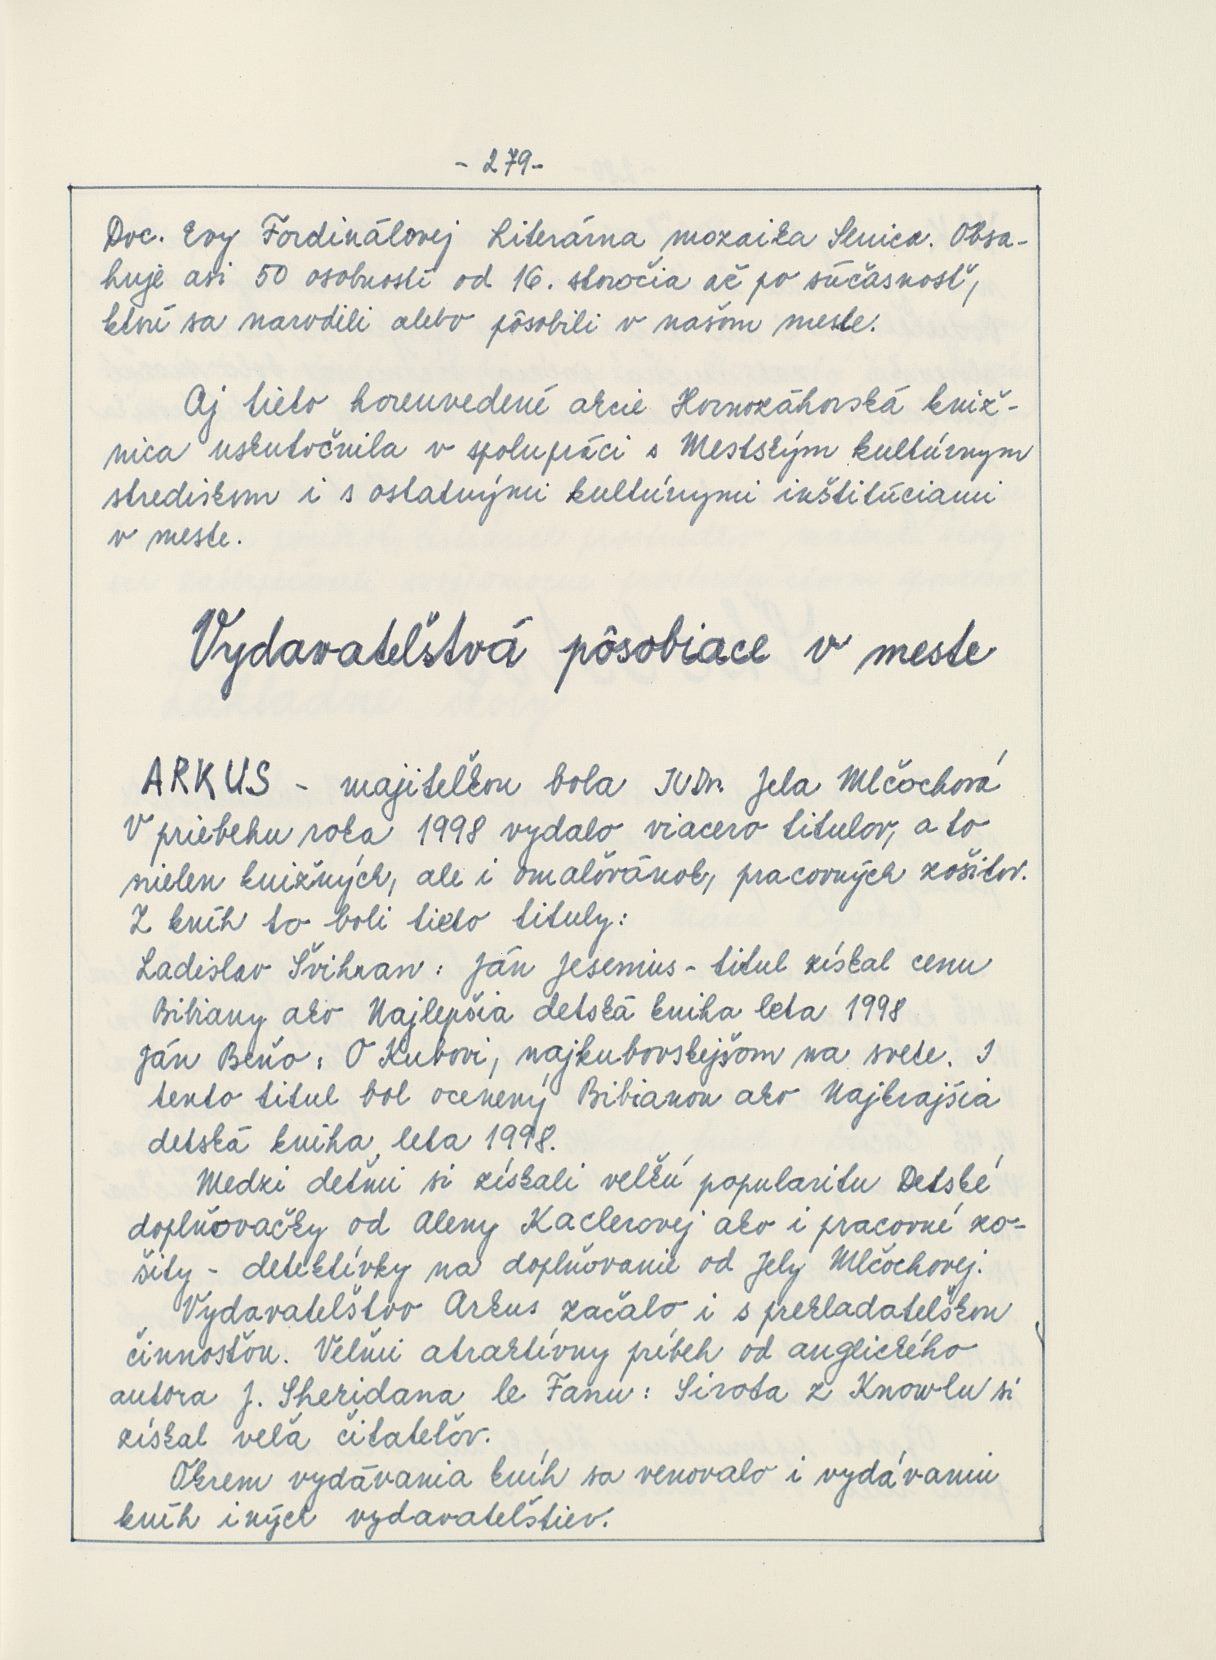 - 279-
Doc. Evy Fordinálovej Literárna mozaika Senica. Obsa-
huje asi 50 osobností od 16. storočia až po súčasnosť,
ktorí sa narodili alebo pôsobili v našom meste.
Aj tieto horeuvedené akcie Hornozáhorská kniž-
nica uskutočnila v spolupráci s Mestským kultúrnym
strediskom i s ostatnými kultúrnymi inštitúciami
v meste.
Vydavateľstvá pôsobiace v meste
ARKUS - majiteľkou bola JUDr. Jela Mlčochová
V priebehu roka 1998 vydalo viacero titulov, a to
nielen knižných, ale i omaľovánok, pracovných zošitov.
Z kníh to boli tieto tituly:
Ladislav Švihran: Ján Jesenius - titul získal cenu
Bibiany ako Najlepšia detská kniha leta 1998
Ján Beňo: O Kubovi, najkubovskejšom na svete. I
tento titul bol ocenený Bibianou ako Najkrajšia
detská kniha leta 1998.
Medzi deťmi si získali veľkú popularitu Detské
doplňovačky od Aleny Kaclerovej ako i pracovné zo-
šity - detektívky na doplňovanie od Jely Mlčochovej.
Vydavateľstvo Arkus začalo i s prekladateľskou
činnosťou. Veľmi atraktívny príbeh od anglického
autora J. Sheridana le Fanu: Sirota z Knowlu si
získal veľa čitateľov.
Okrem vydávania kníh sa venovalo i vydávaniu
kníh iných vydavateľstiev.